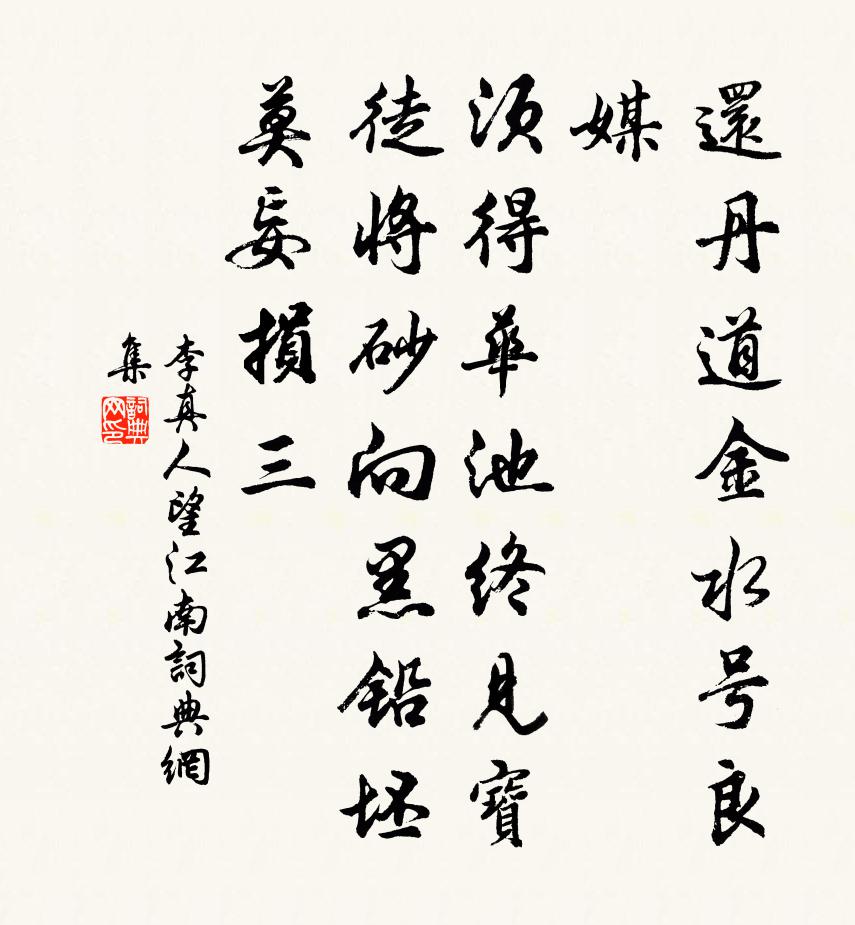 還丹道金水号良
媒
須得華池終見寶
徒將砂向黑鉛坯
莫妄損三
李真人望江南詞典網
集
詞典
网印